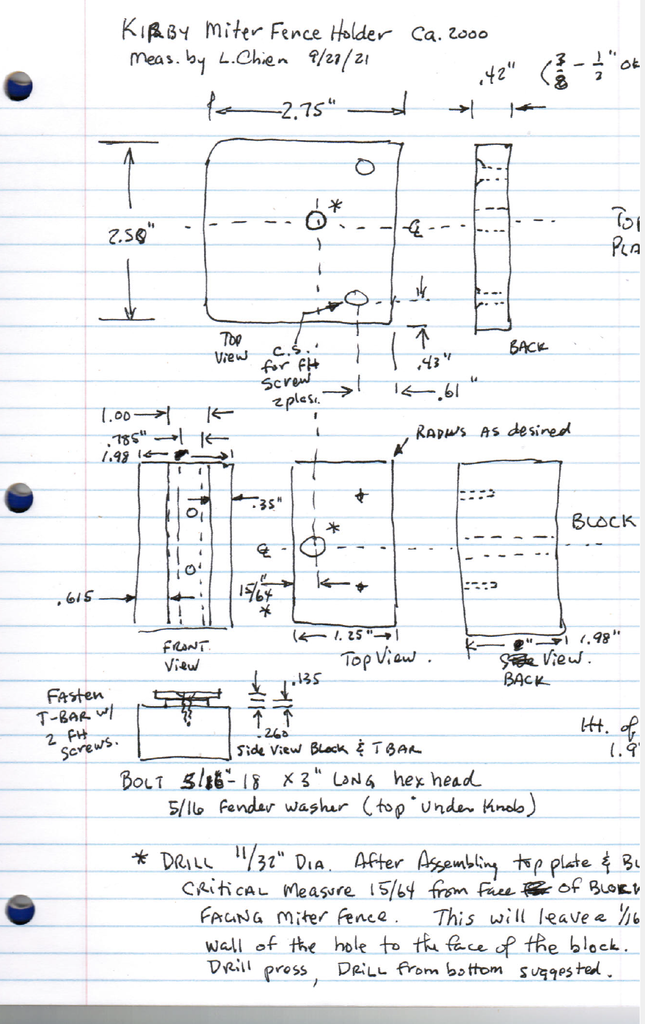 KIRBY Miter Fence Holder Ca. 2000
Meas. by L. Chien 9/28/21
.42" (3/8 - 1/2" OK
2.75"
*
2.50"
℄
TOP
PLA
TOP
View
C.S.
for FH
Screw
2 plas.
.43"
BACK
.61"
1.00
.785"
1.98
RADIUS AS desired
.35"
*
℄
BLOCK
.615
15/64"
*
1.25"
1.98"
FRONT
View
Top View.
View.
BACK
Fasten
T-BAR w/
2 FH
Screws.
.135
.260
Side View Block & T BAR
Ht. of
1.9
BOLT 5/16"-18 X 3" LONG hex head
5/16 Fender washer (top Under Knob)
* DRILL 11/32" DIA. After Assembling top plate & BL
CRITICAL Measure 15/64 from Face of BLOCK
FACING Miter Fence. This will leave a 1/16
wall of the hole to the face of the block.
Drill press, DRILL from bottom suggested.